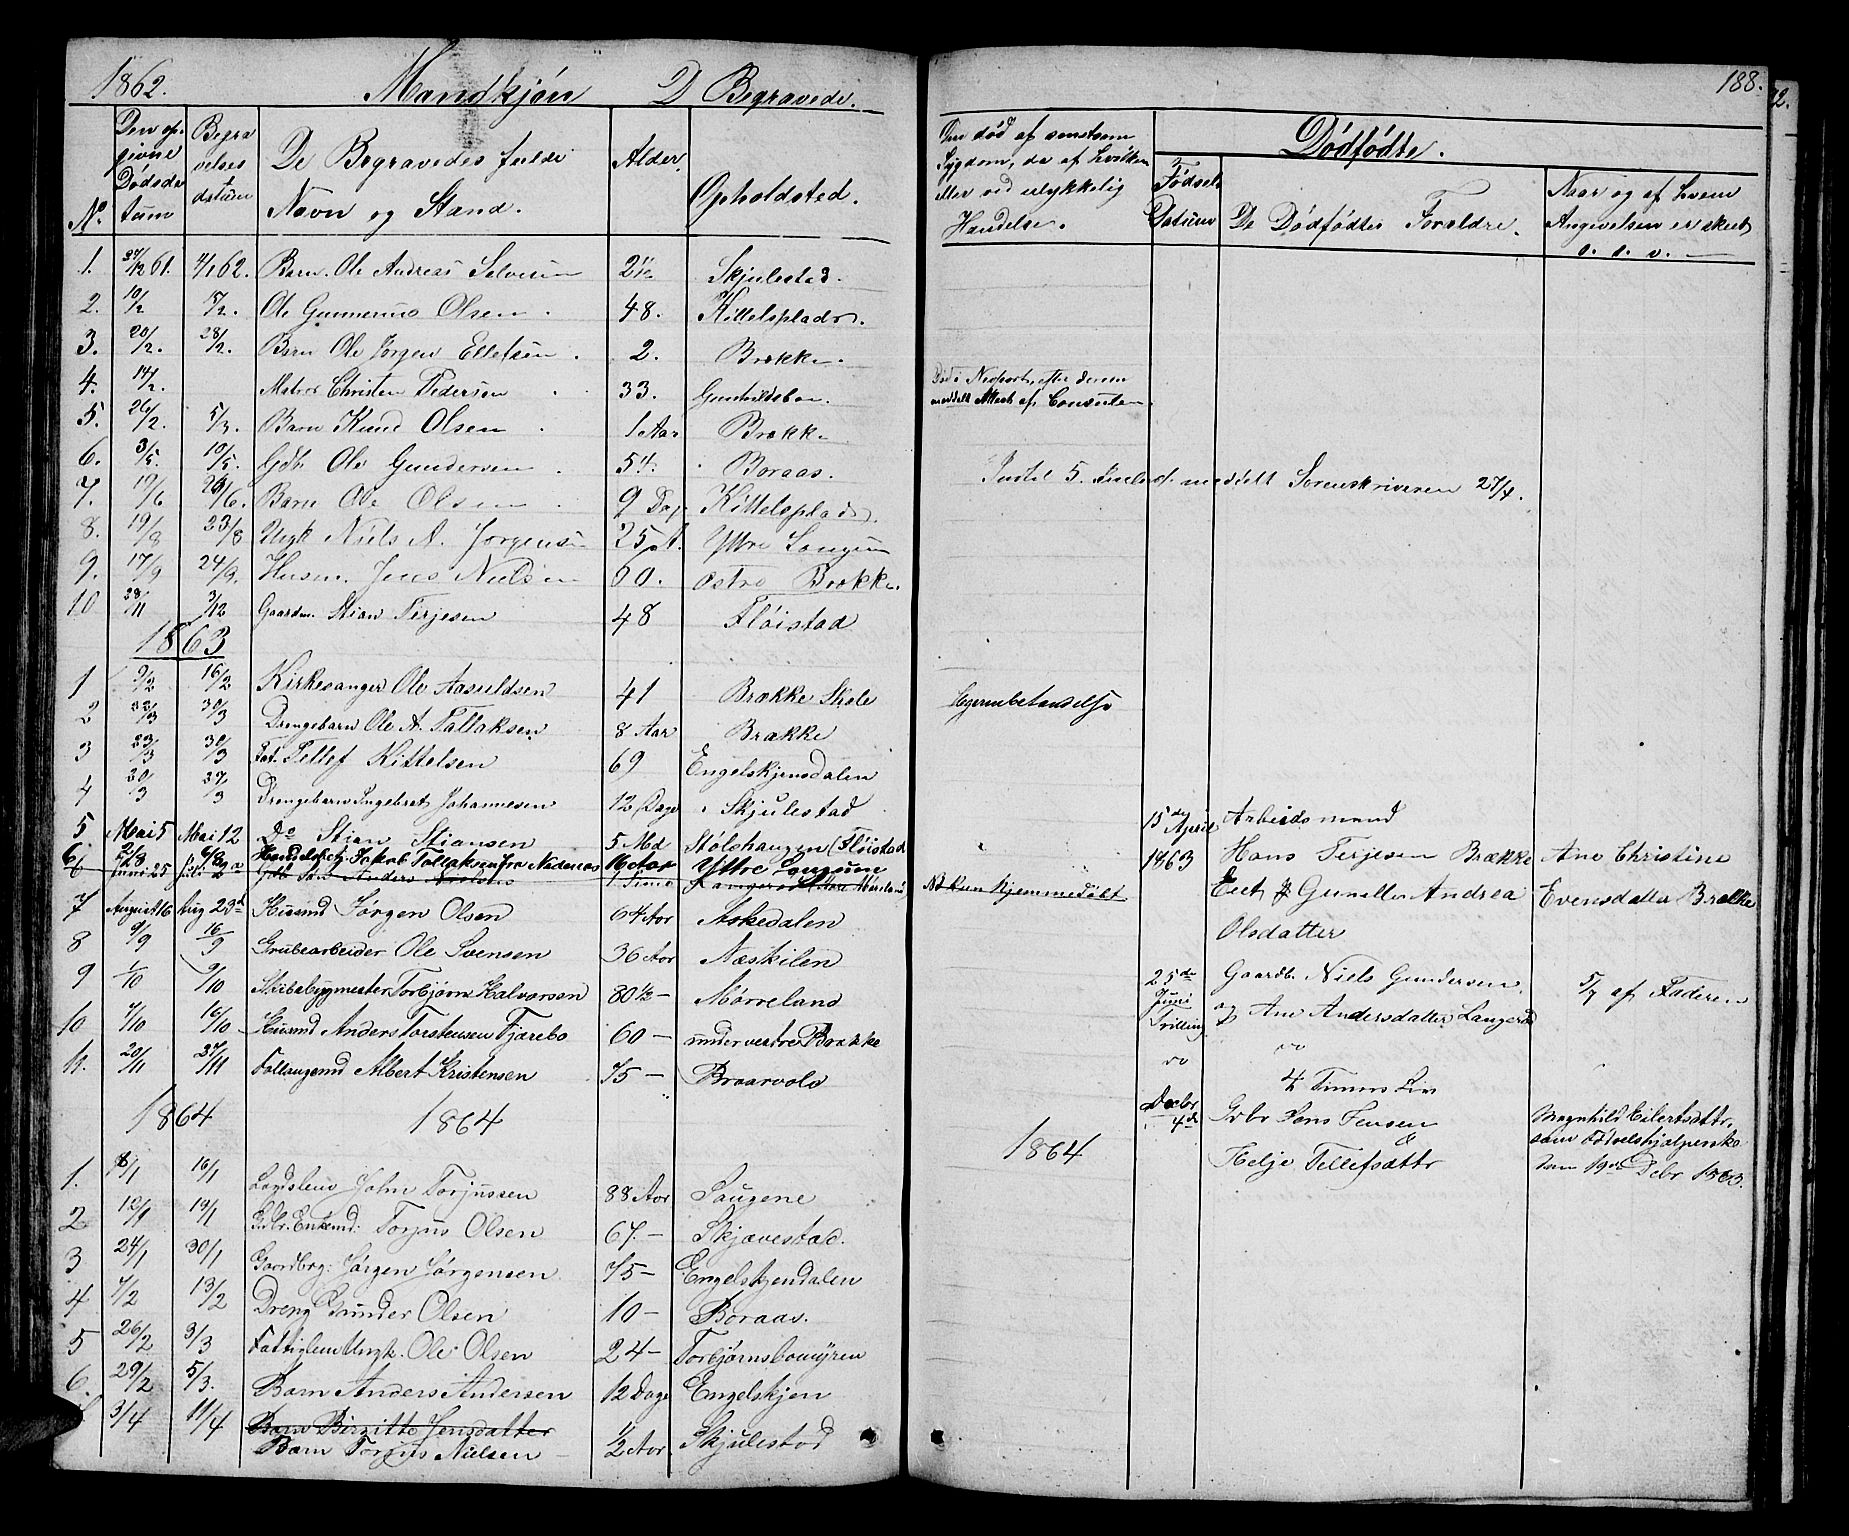 1862. Mandkjøn D Begravede.
188.
No. Den opgivne Dødsdatum Begravelses datum De Begravedes fulde Navn og Stand. Alder. Opholdsted.
Den død af smitsom Sygdom, da af hvilken eller ved ulykkelig Hændelse.
Dødfødte.
Fødsels Datum De Dødfødtes Forældre. Naar og af hvem Angivelsen er skeet
1. 27/12 61. 4/1 62. Barn Ole Andreas 2 Skjulestad.
2. 10/2 Ole Gunnerius Olsen 48. Kittelsplads.
3. 20/2. 28/2. Barn Ole Jørgen Ellefsen 2. Brække.
4. 14/2. Matros Christen Pedersen 33. Gunhildsboe. Død i Newport, efter derom meddelt Attest af Consulen.
5. 26/2. 5/3. Barn Knud Olsen 1 Aar Brække
6. 3/5. 10/5. Gdb. Ole Gundersen 54. Boraas.
Indtil 5. meddelt Sorenskriveren 27/4.
7. 19/6 29/6. Barn Ole Olsen 9 Dag Kittelsplads.
8. 19/8 23/8 Ungk Niels A. Jørgensen 25 A. Yttre Longum
9. 17/9 24/9. Husm. Jens Nielsen 60. østre Brække.
10 28/11 3/12 Gaardm. Stian Terjesen 48 Fløistad
1863
1 9/2 16/2 Kirkesanger Ole Aasuldsen 41 Brække Skole
2 22/3 30/3 Drengebarn Ole A. Tallaksen 8 Aar Brække
3 23/3 30/3 Fat. Tellef Kittelsen 69 Engelskjensdalen
4 20/3 27/3 Drengebarn Ingebret Johannesen 12 Dage Skjulestad
5. Mai 5 Mai 12 Do Stian Stiansen 5 Md Stølshaugen (Fløistad
6. 2/8 6/8 Jakob Tallaksen fra Nedenæs 16 Aar Yttre Longum
6 Juni 25 Gdb Anders Nielsen 1 Time
No kun hjemmedøbt
7 August 16 Aug 23d Husmd Jørgen Olsen 64 Aar Askedalen
8 9/9 16/9 Grubearbeider Ole Svensen 36 Aar Næskilen
9 1/10 9/10 Skibsbygmester Torbjørn Halvorsen 80 1/2 — Mørreland
10 7/10 16/10 Husmd Anders Torstensen Fjærebo 60 — under vestre Brække
11. 20/11 27/11 Albert Kristensen 75 — Braarvold
15de April 1863 Arbeidsmand Hans Terjesen Brække Eiet & Gunille Andrea Olsdatter
Ane Christine Evensdatter Brække
25de Juni Tvilling Gaardb. Niels Gundersen og Ane Andersdatter Langerød
5/7 af Faderen
4 Timers Liv
Decbr 4de Gdbr Jens Jensen & Helje Tellefsdattr
Magnhild Eilertsdttr. som Fødselshjælperske den 19de Debr 1863.
1864 1864 1864
1. 8/1 16/1 John Torjussen 88 Aar Saugene
2 12/1 19/1 Gdbr. Enkemd: Torjus Olsen 67. — Skjævestad.
3 24/1 30/1 Gaardbrg: Jørgen Jørgensen 75 — Engelskjendalen
4 7/2 13/2 Dreng Gunder Olsen 10 — Boraas.
5 26/2 3/3 Fattiglem Ungk. Ole Olsen 24 — Torbjørnsbomyren
6. 29/2 5/3. Barn Anders Andersen 12 Dage Engelskjen
3/4 11/4 Barn Birgitte Jensdatter
Barn Torjus Nielsen — 1/2 Aar Skjulestad